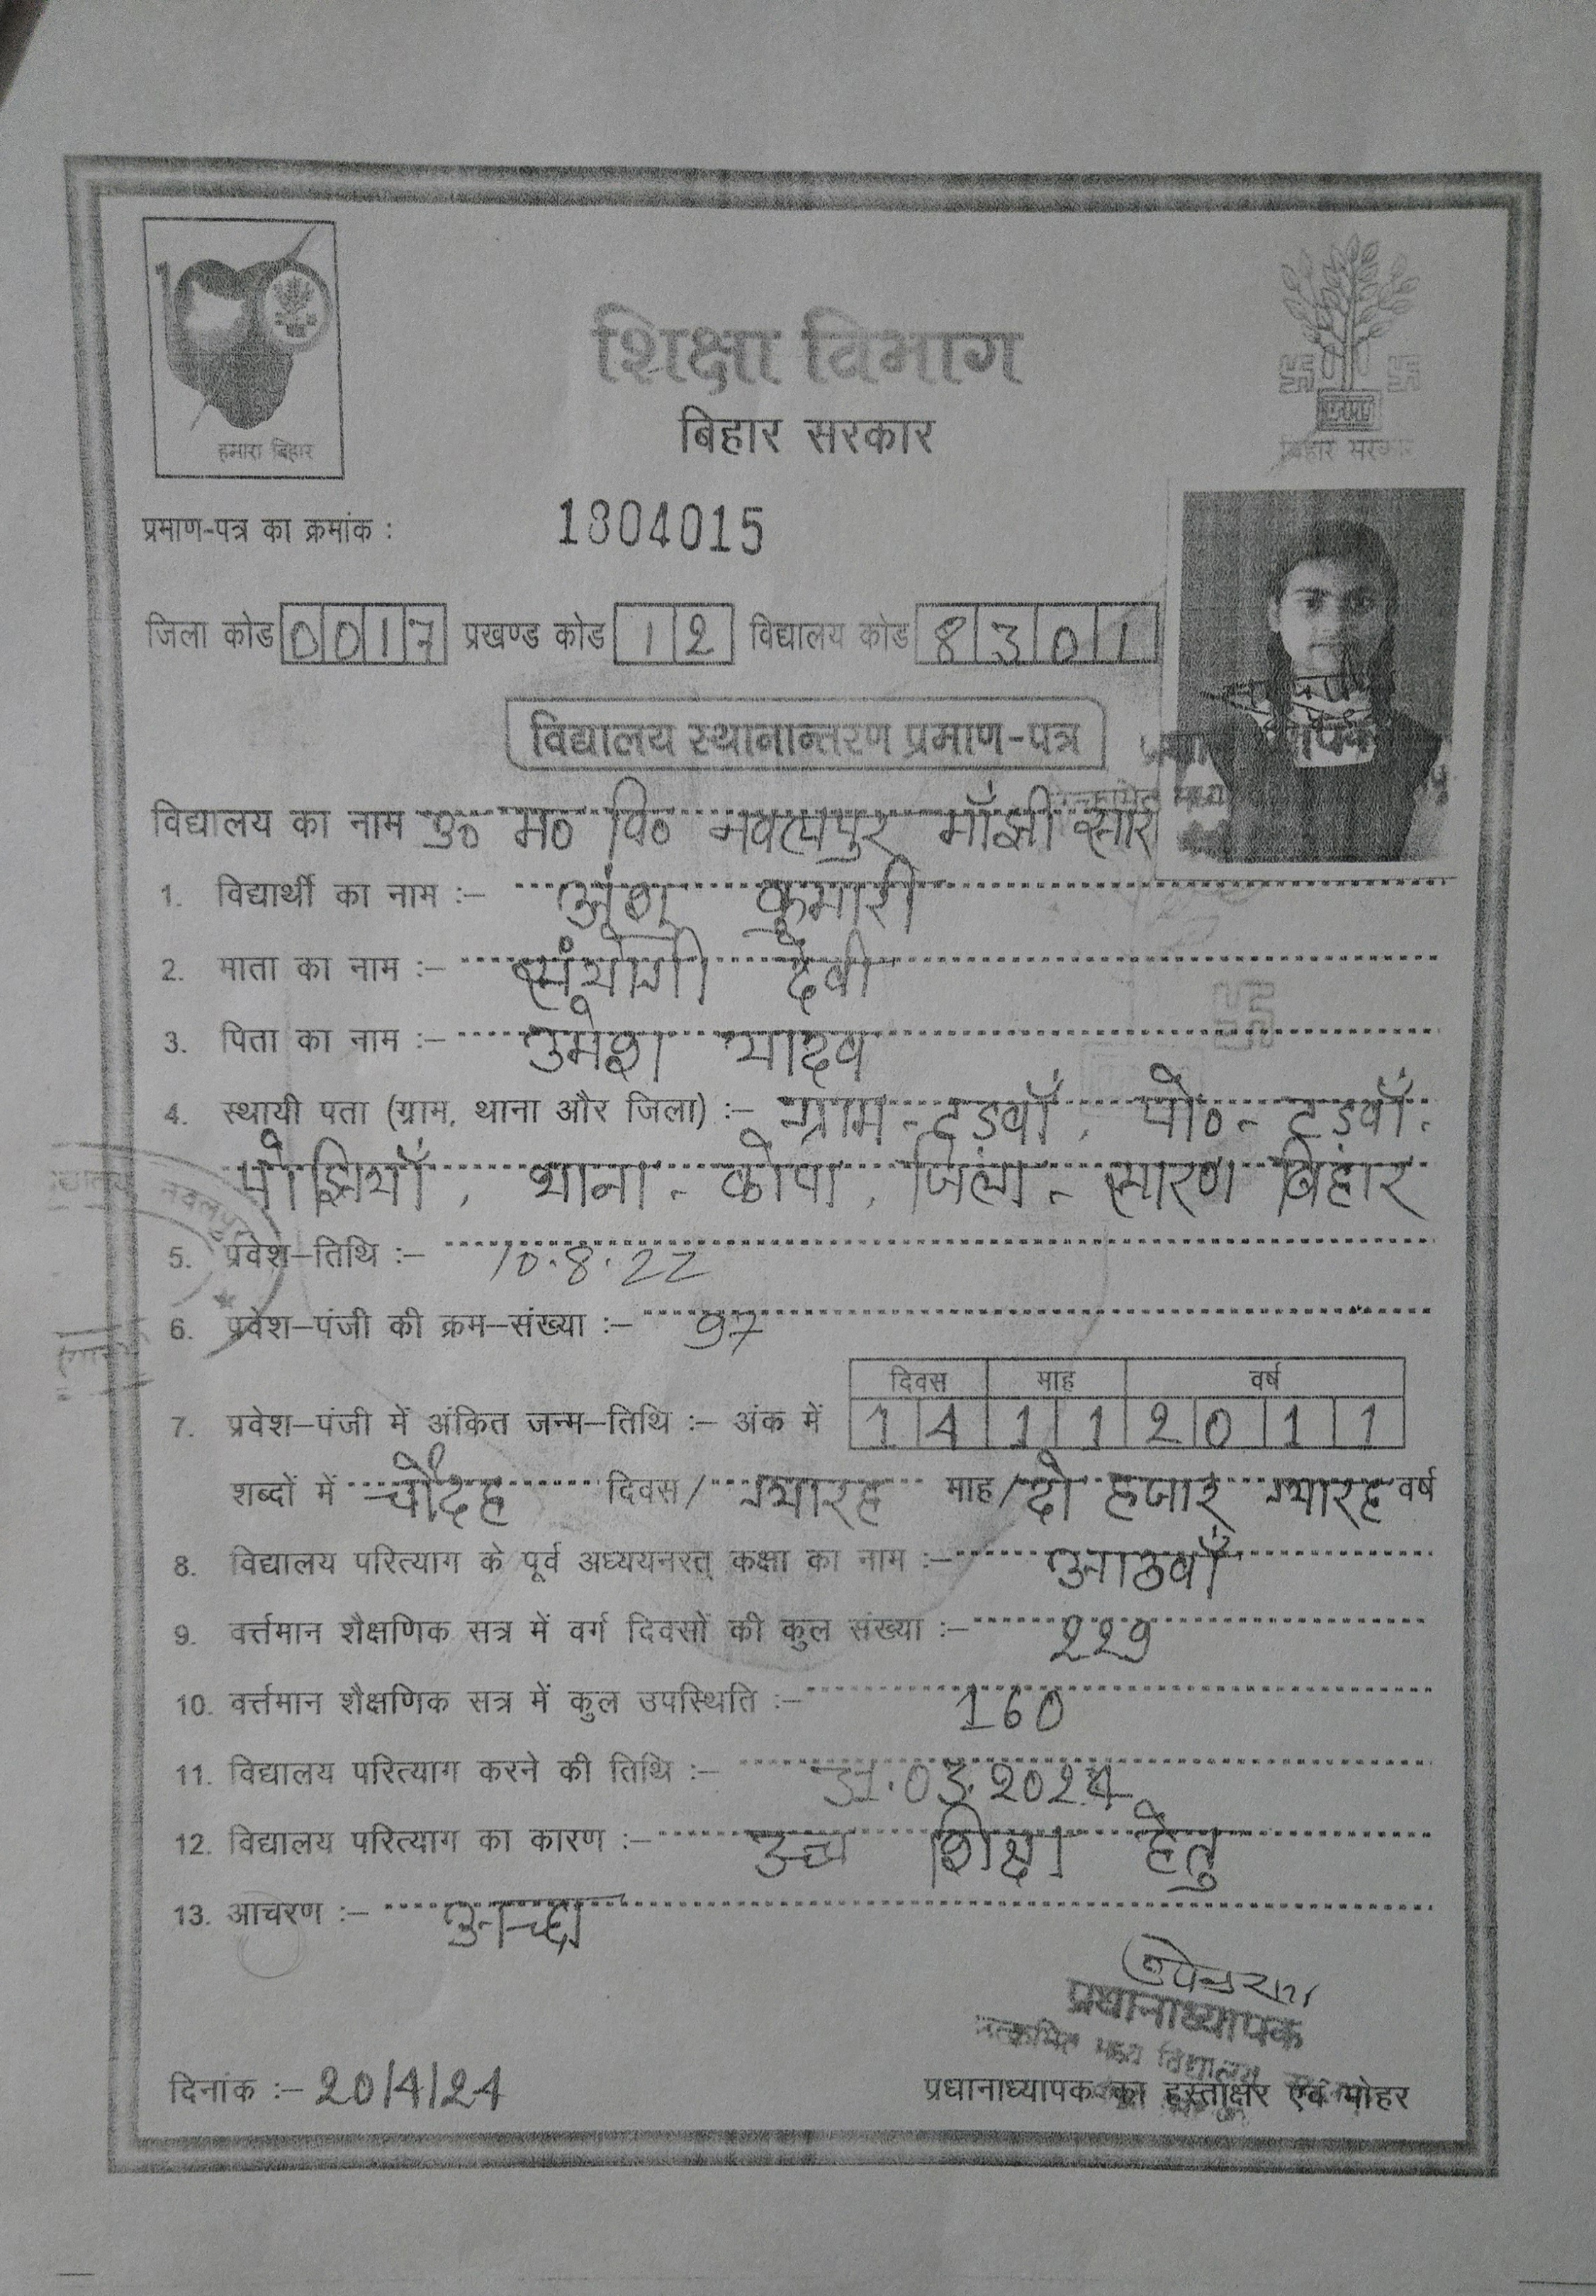 हमारा बिहार
शिक्षा विभाग
बिहार सरकार
बिहार सरकार
प्रमाण-पत्र का क्रमांक : 1804015
जिला कोड 0017 प्रखण्ड कोड 12 विद्यालय कोड 8301
विद्यालय स्थानान्तरण प्रमाण-पत्र
विद्यालय का नाम उ० म० वि० नवलपुर माँझी सारण
1. विद्यार्थी का नाम :– अंशु कुमारी
2. माता का नाम :– संयोगी देवी
3. पिता का नाम :– उमेश यादव
4. स्थायी पता (ग्राम, थाना और जिला) :– ग्राम - टड़वाँ, पो०- टड़वाँ.
थाना - कोपा, जिला - सारण बिहार
5. प्रवेश–तिथि :– 10.8.22
6. प्रवेश–पंजी की क्रम–संख्या :– 97
दिवस माह वर्ष
7. प्रवेश–पंजी में अंकित जन्म–तिथि :– अंक में 14 11 2011
शब्दों में चौदह दिवस/ ग्यारह माह/ दो हजार ग्यारह वर्ष
8. विद्यालय परित्याग के पूर्व अध्ययनरत् कक्षा का नाम :– आठवाँ
9. वर्त्तमान शैक्षणिक सत्र में वर्ग दिवसों की कुल संख्या :– 229
10. वर्त्तमान शैक्षणिक सत्र में कुल उपस्थिति :– 160
11. विद्यालय परित्याग करने की तिथि :– 31.03.2024
12. विद्यालय परित्याग का कारण :– उच्च शिक्षा हेतु
13. आचरण :– अच्छा
प्रधानाध्यापक
उत्क्रमित मध्य विद्यालय
दिनांक :– 20/4/24 प्रधानाध्यापक का हस्ताक्षर एवं मोहर